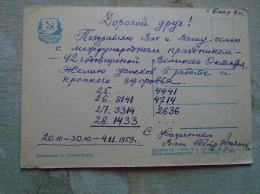 г. Баку 4.XI.
Дорогой друг!
Поздравляю Вас и Вашу семью
с международным праздником-
42 годовщиной Великого Октября.
Желаю успехов в работе и
крепкого здоровья.
25. ... 4441
26. 8141 4714
27. 3314 2636
28. 1433 ...
С уважением
20.10-30.10-4.11.1959г. Ваш